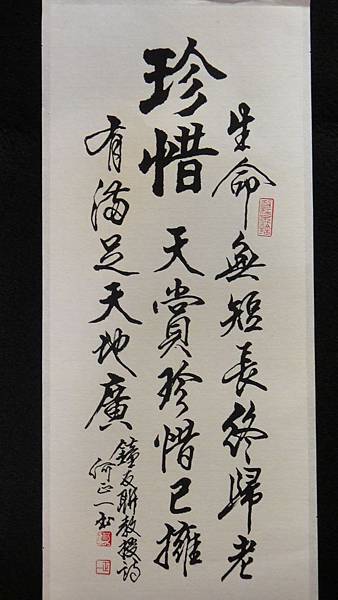 珍惜
生命無短長終歸老
天賞珍惜已擁
有滿足天地廣
鐘友聯教授詩
何正一書